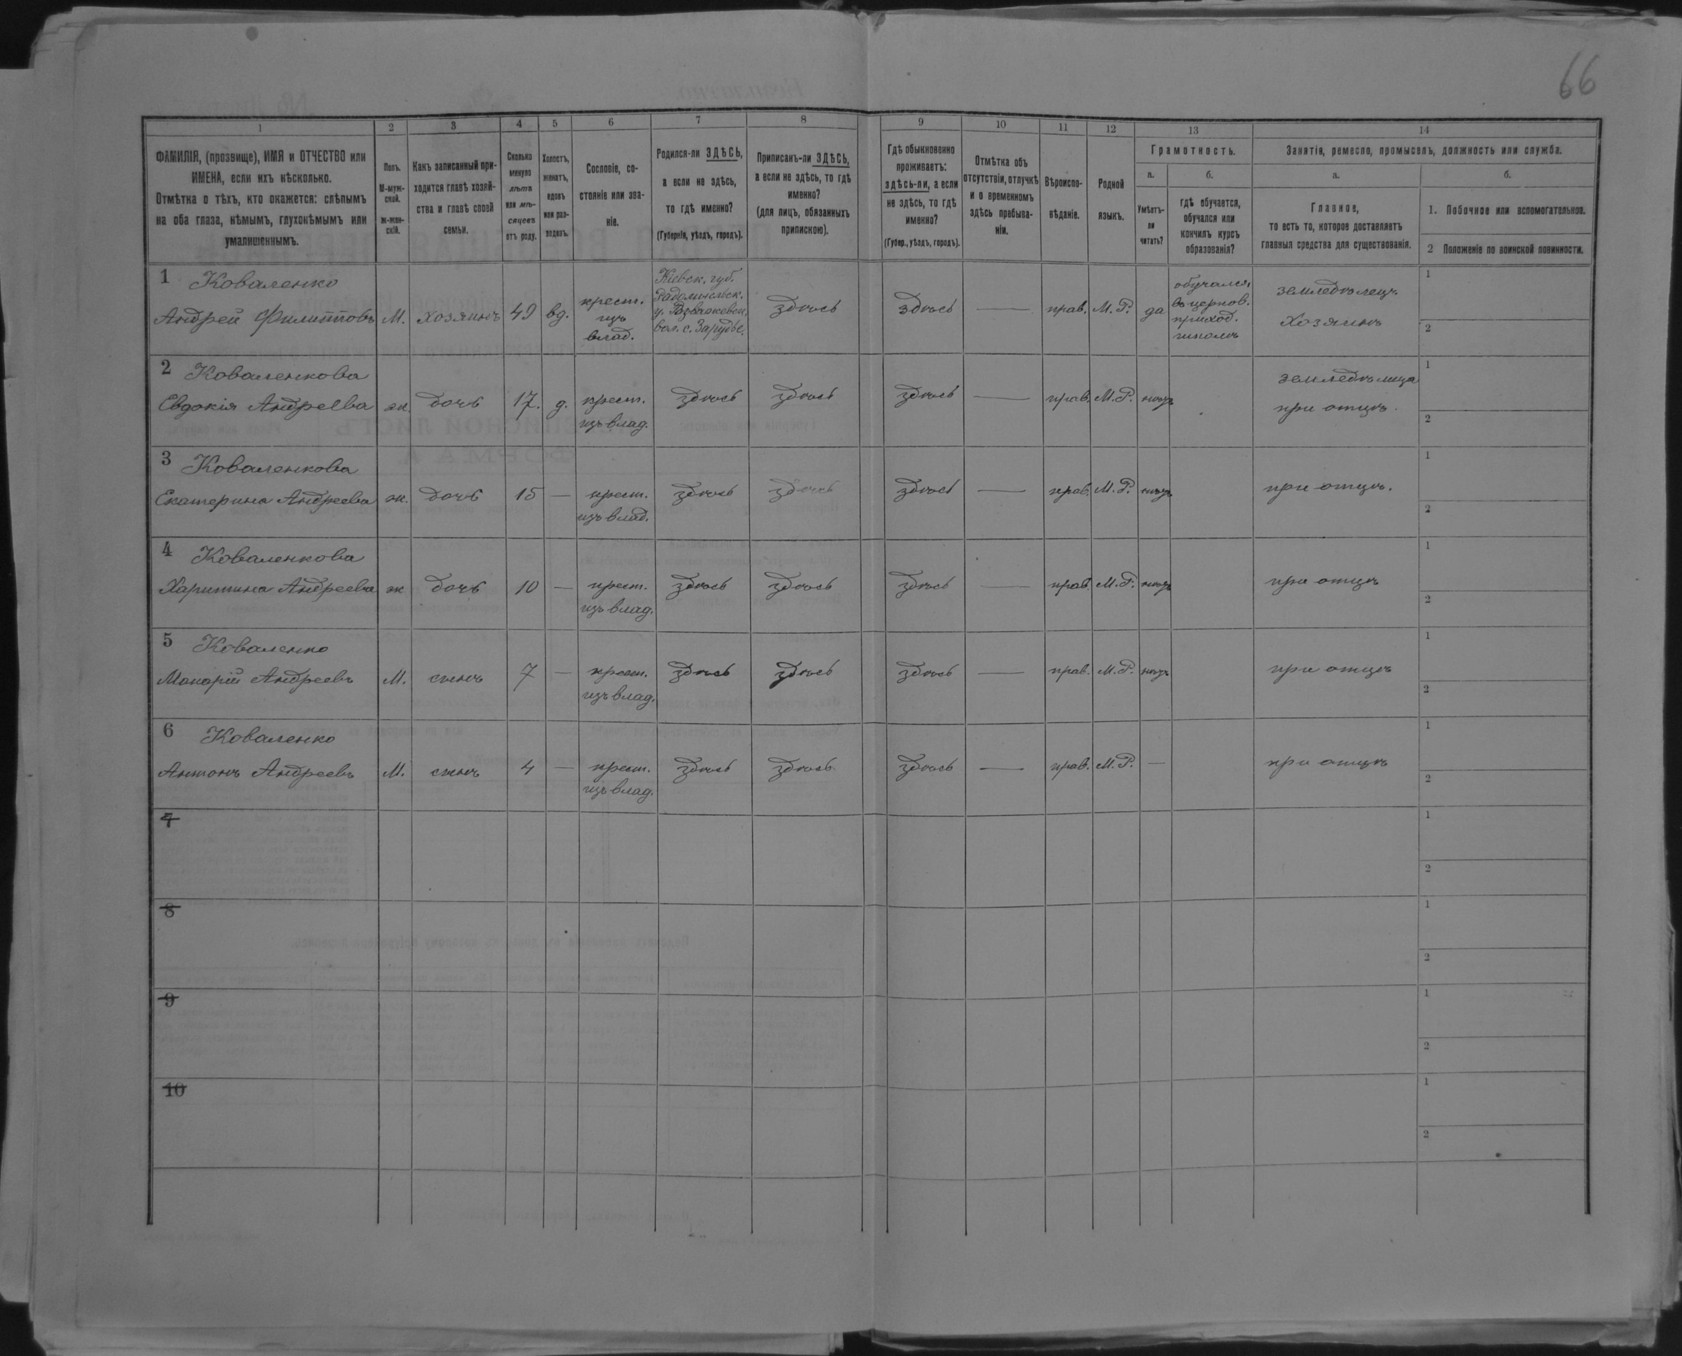 66
1 2 3 4 5 6 7 8 9 10 11 12 13 14
ФАМИЛІЯ, (прозвище), ИМЯ и ОТЧЕСТВО или ИМЕНА, если ихъ нѣсколько.
Отмѣтка о тѣхъ, кто окажется: слѣпымъ на оба глаза, нѣмымъ, глухонѣмымъ или умалишеннымъ.
Полъ.
М-мужской.
ж-женскій.
Какъ записанный приходится главѣ хозяйства и главѣ своей семьи.
Сколько минуло лѣтъ или мѣсяцевъ отъ роду.
Холостъ, женатъ, вдовъ или разведенъ.
Сословіе, состояніе или званіе.
Родился-ли ЗДѢСЬ, а если не здѣсь, то гдѣ именно?
(Губернія, уѣздъ, городъ).
Приписанъ-ли ЗДѢСЬ, а если не здѣсь, то гдѣ именно?
(для лицъ, обязанныхъ припискою).
Гдѣ обыкновенно проживаетъ: здѣсь-ли, а если не здѣсь, то гдѣ именно?
(Губер., уѣздъ, городъ).
Отмѣтка объ отсутствіи, отлучкѣ и о временномъ здѣсь пребываніи.
Вѣроисповѣданіе.
Родной языкъ.
Грамотность.
а.
Умѣетъ-ли читать?
б.
гдѣ обучается, обучался или кончилъ курсъ образованія?
Занятія, ремесло, промыселъ, должность или служба.
а.
Главное,
то есть то, которое доставляетъ главныя средства для существованія.
б.
1. Побочное или вспомогательное.
2 Положеніе по воинской повинности.
1 Коваленко
Андрей Филипповъ М. хозяинъ 49 вд. крест. изъ влад. Кіевск. губ. Радомысльск. у. вол. с. Зарудье. здѣсь здѣсь — прав. М. Р. да обучался въ церков. приход. школѣ земледѣлецъ хозяинъ 1 2
2 Коваленкова
Евдокія Андреева ж. дочь 17. д. крест. изъ влад. здѣсь здѣсь здѣсь — прав. М. Р. нѣтъ земледѣлица при отцѣ. 1 2
3 Коваленкова
Екатерина Андреева ж. дочь 15 — крест. изъ влад. здѣсь здѣсь здѣсь — прав. М. Р. нѣтъ при отцѣ. 1 2
4 Коваленкова
Харитина Андреева ж дочь 10 — крест. изъ влад. здѣсь здѣсь здѣсь — прав. М. Р. нѣтъ при отцѣ 1 2
5 Коваленко
Макарій Андреевъ М. сынъ 7 — крест. изъ влад. здѣсь здѣсь здѣсь — прав. М. Р. нѣтъ при отцѣ 1 2
6 Коваленко
Антонъ Андреевъ М. сынъ 4 — крест. изъ влад. здѣсь здѣсь. здѣсь — прав. М. Р. — при отцѣ 1 2
7 1 2
8 1 2
9 1 2
10 1 2